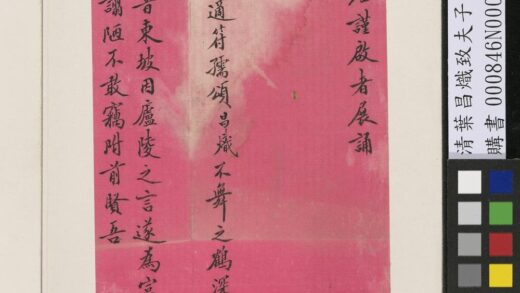 謹啟者展誦
適符孺頌昌熾不舞之鶴深
昔東坡因廬陵之言遂為
謭陋不敢竊附前賢吾
清葉昌熾致夫子
購書 000846N000